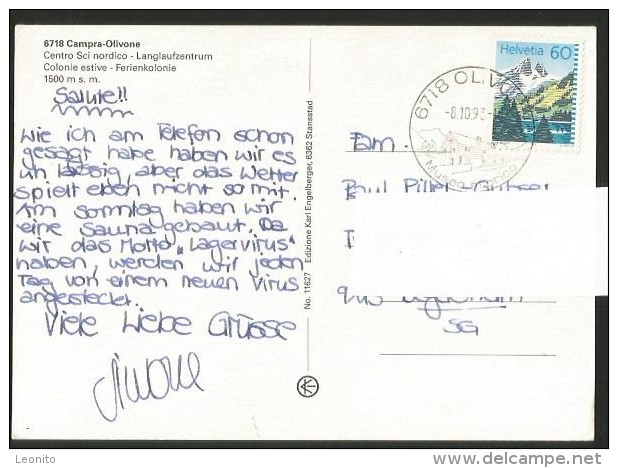 6718 Campra-Olivone
Centro Sci nordico - Langlaufzentrum
Colonie estive - Ferienkolonie
1500 m s. m.
Salute!!
Wie ich am Telefon schon
gesagt habe haben wir es
uh lässig, aber das Wetter
spielt eben nicht so mit.
Am Sonntag haben wir
eine Sauna gebaut. Da
wir das Motto „Lagervirus"
haben, werden wir jeden
Tag von einem neuen Virus
angesteckt.
Viele Liebe Grüsse
Simone
No. 11627 Edizione Karl Engelberger, 6362 Stansstad
Helvetia 60
6718 OLIVONE
-8.10.93-
Museo
Fam.
Paul
SG
www.delcampe.net